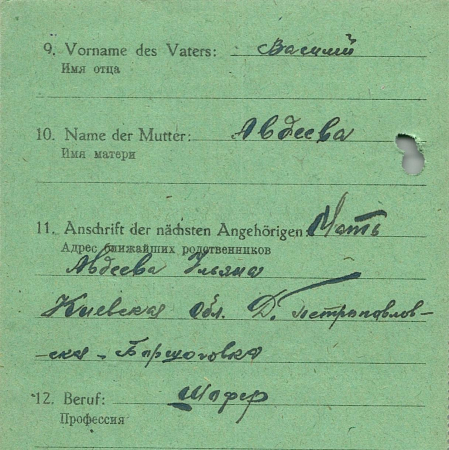 9. Vorname des Vaters: Василий
Имя отца
10. Name der Mutter: Авдеева
Имя матери
11. Anschrift der nächsten Angehörigen: Мать
Адрес ближайших родственников
Авдеева Ульяна
Киевская обл. Д. Петрпавлов-
-ска - Борщоговка
12. Beruf: Шофер
Профессия